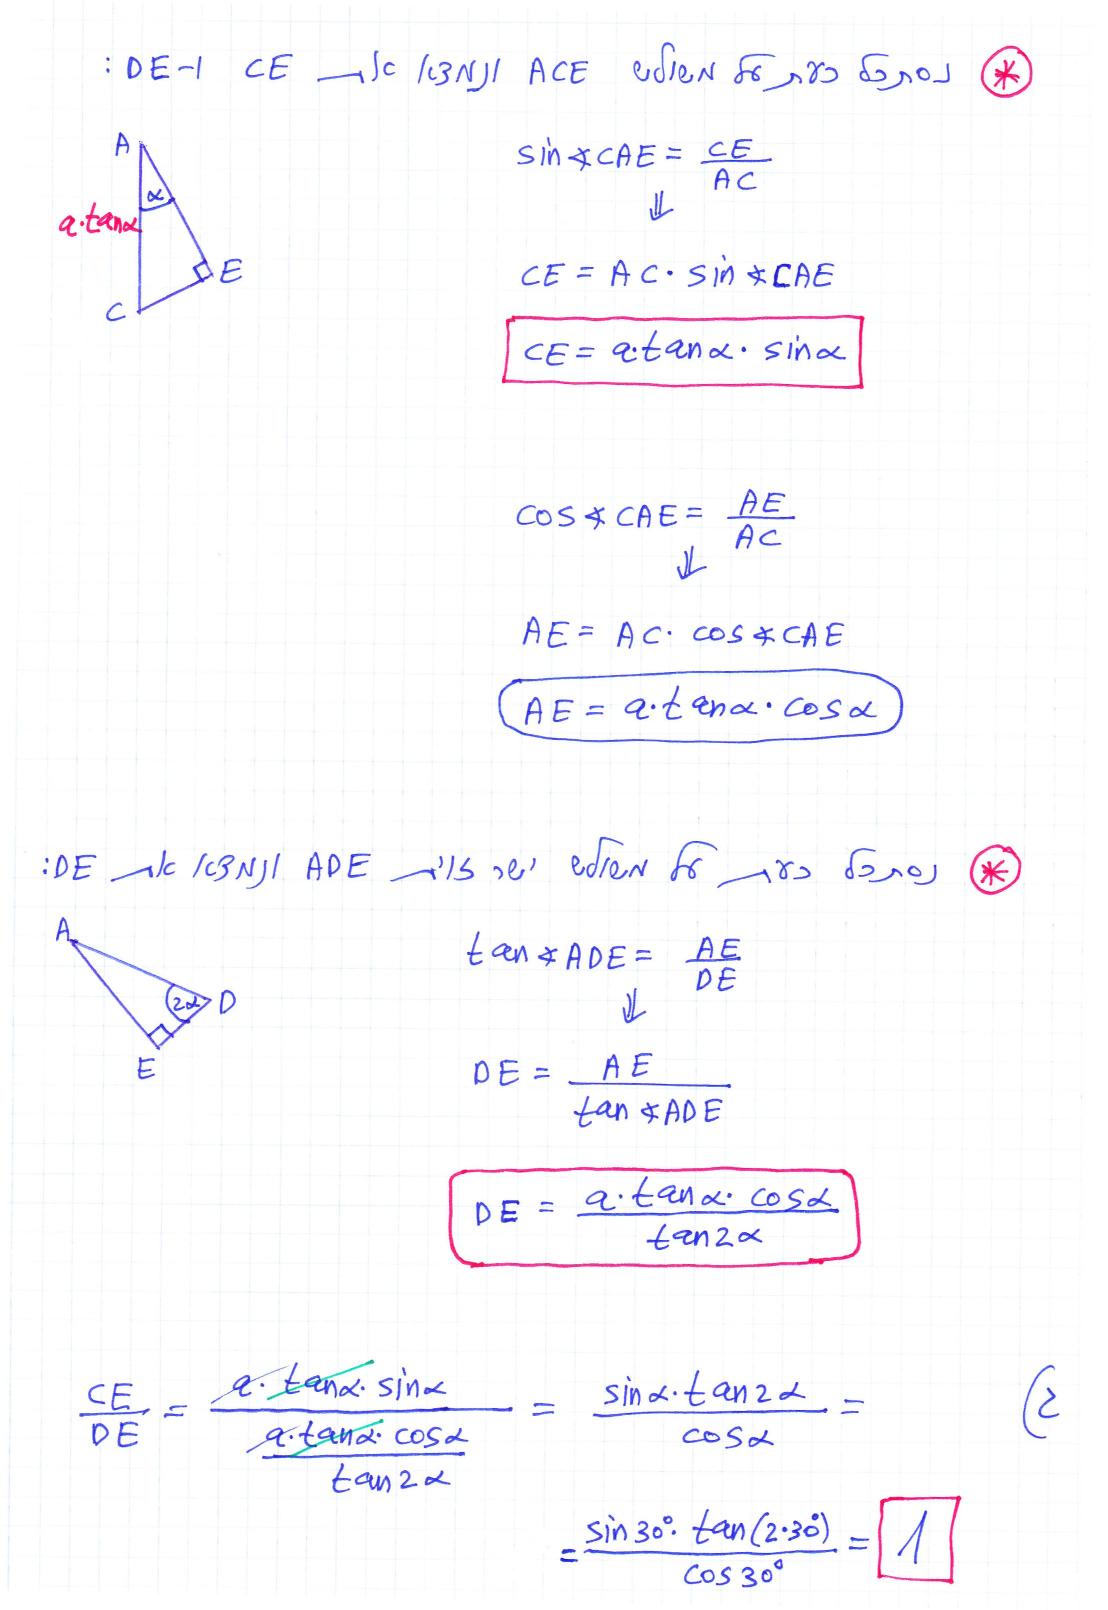 נסתכל כעת על משולש ACE ונמצא את CE ו-DE:
A
α
a·tanα
E
C
sin∢CAE = CE/AC
⇓
CE = AC · sin∢CAE
CE = a·tanα · sinα
cos∢CAE = AE/AC
⇓
AE = AC · cos∢CAE
AE = a·tanα · cosα
נסתכל כעת על משולש ישר זווית ADE ונמצא את DE:
A
2α
D
E
tan∢ADE = AE/DE
⇓
DE = AE/tan∢ADE
DE = a·tanα·cosα/tan2α
ג)
CE/DE = a·tanα·sinα/(a·tanα·cosα/tan2α) = sinα·tan2α/cosα =
= sin30°·tan(2·30°)/cos30° = 1